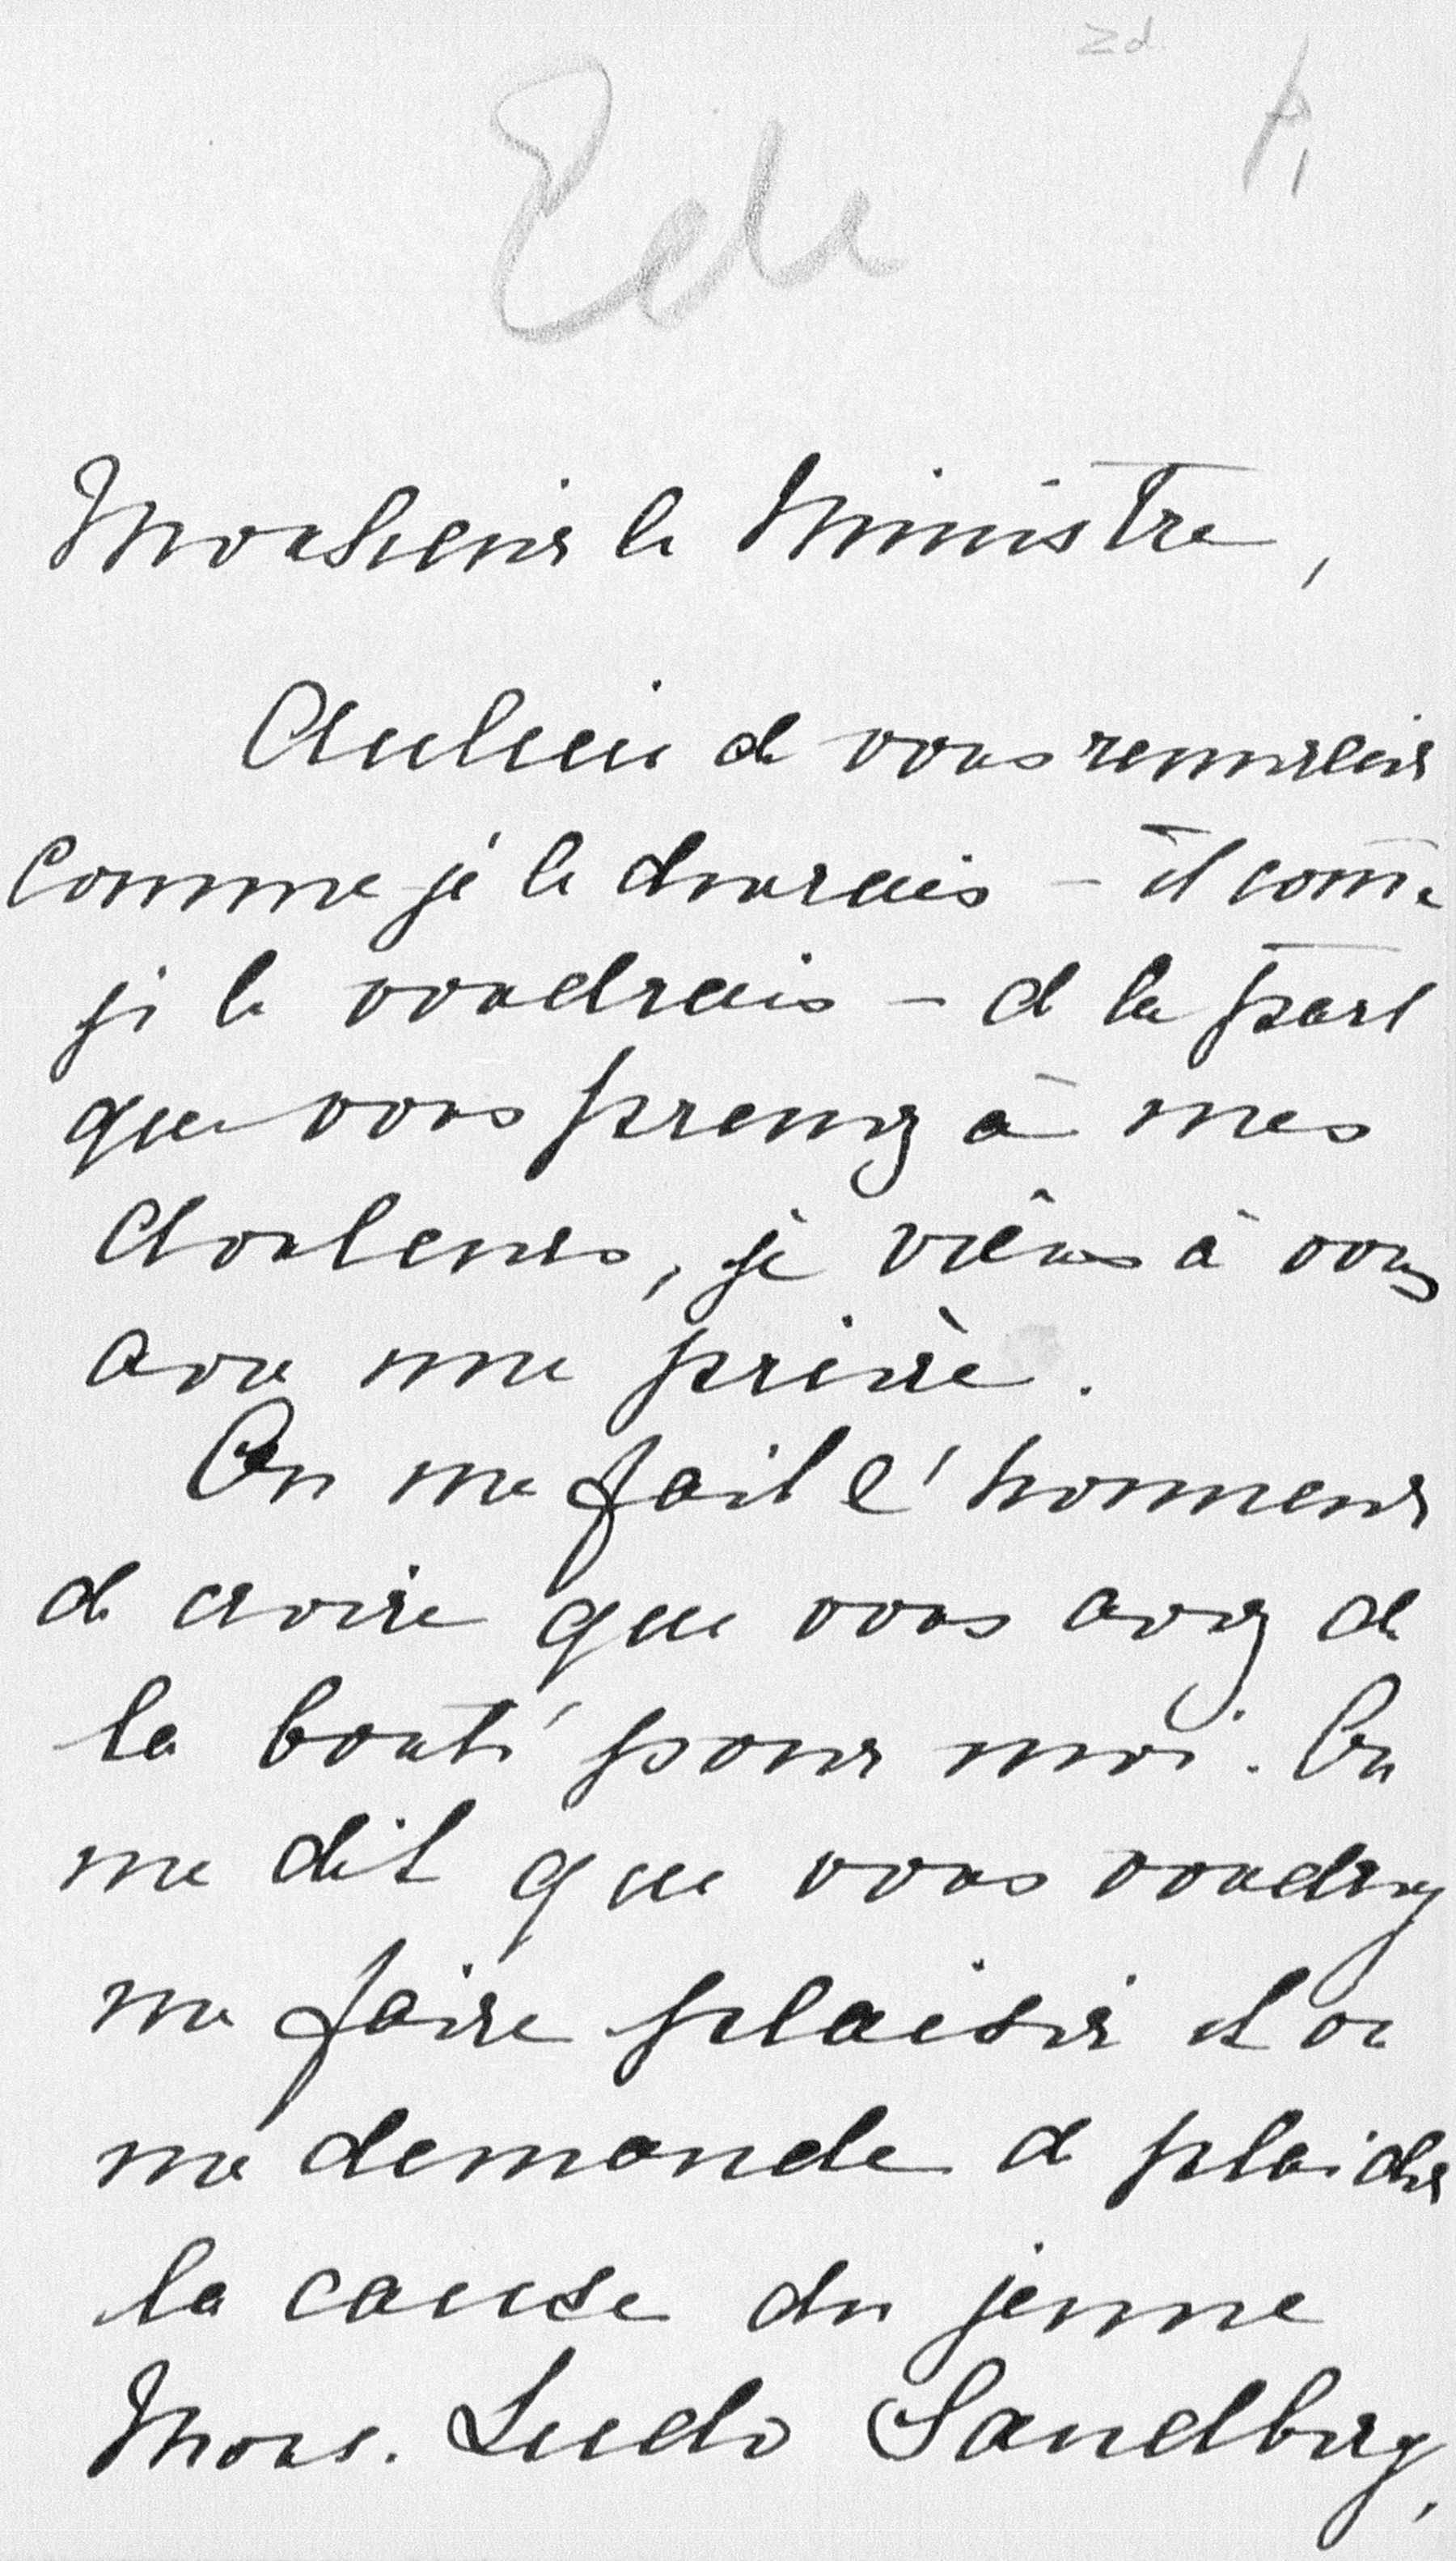 Monsieur le Ministre,
Au lieu de vous remercier
comme je le devrais – et comme
je le voudrais – de la part
que vous prenez à mes
douleurs, je viens à vous
avec une prière.
On me fait l'honneur
de croire que vous avez de
la bonté pour moi. On
me dit que vous voudrez
me faire plaisir et on
me demande de plaider
la cause du jeune
Mons. Ludo Sandberg,